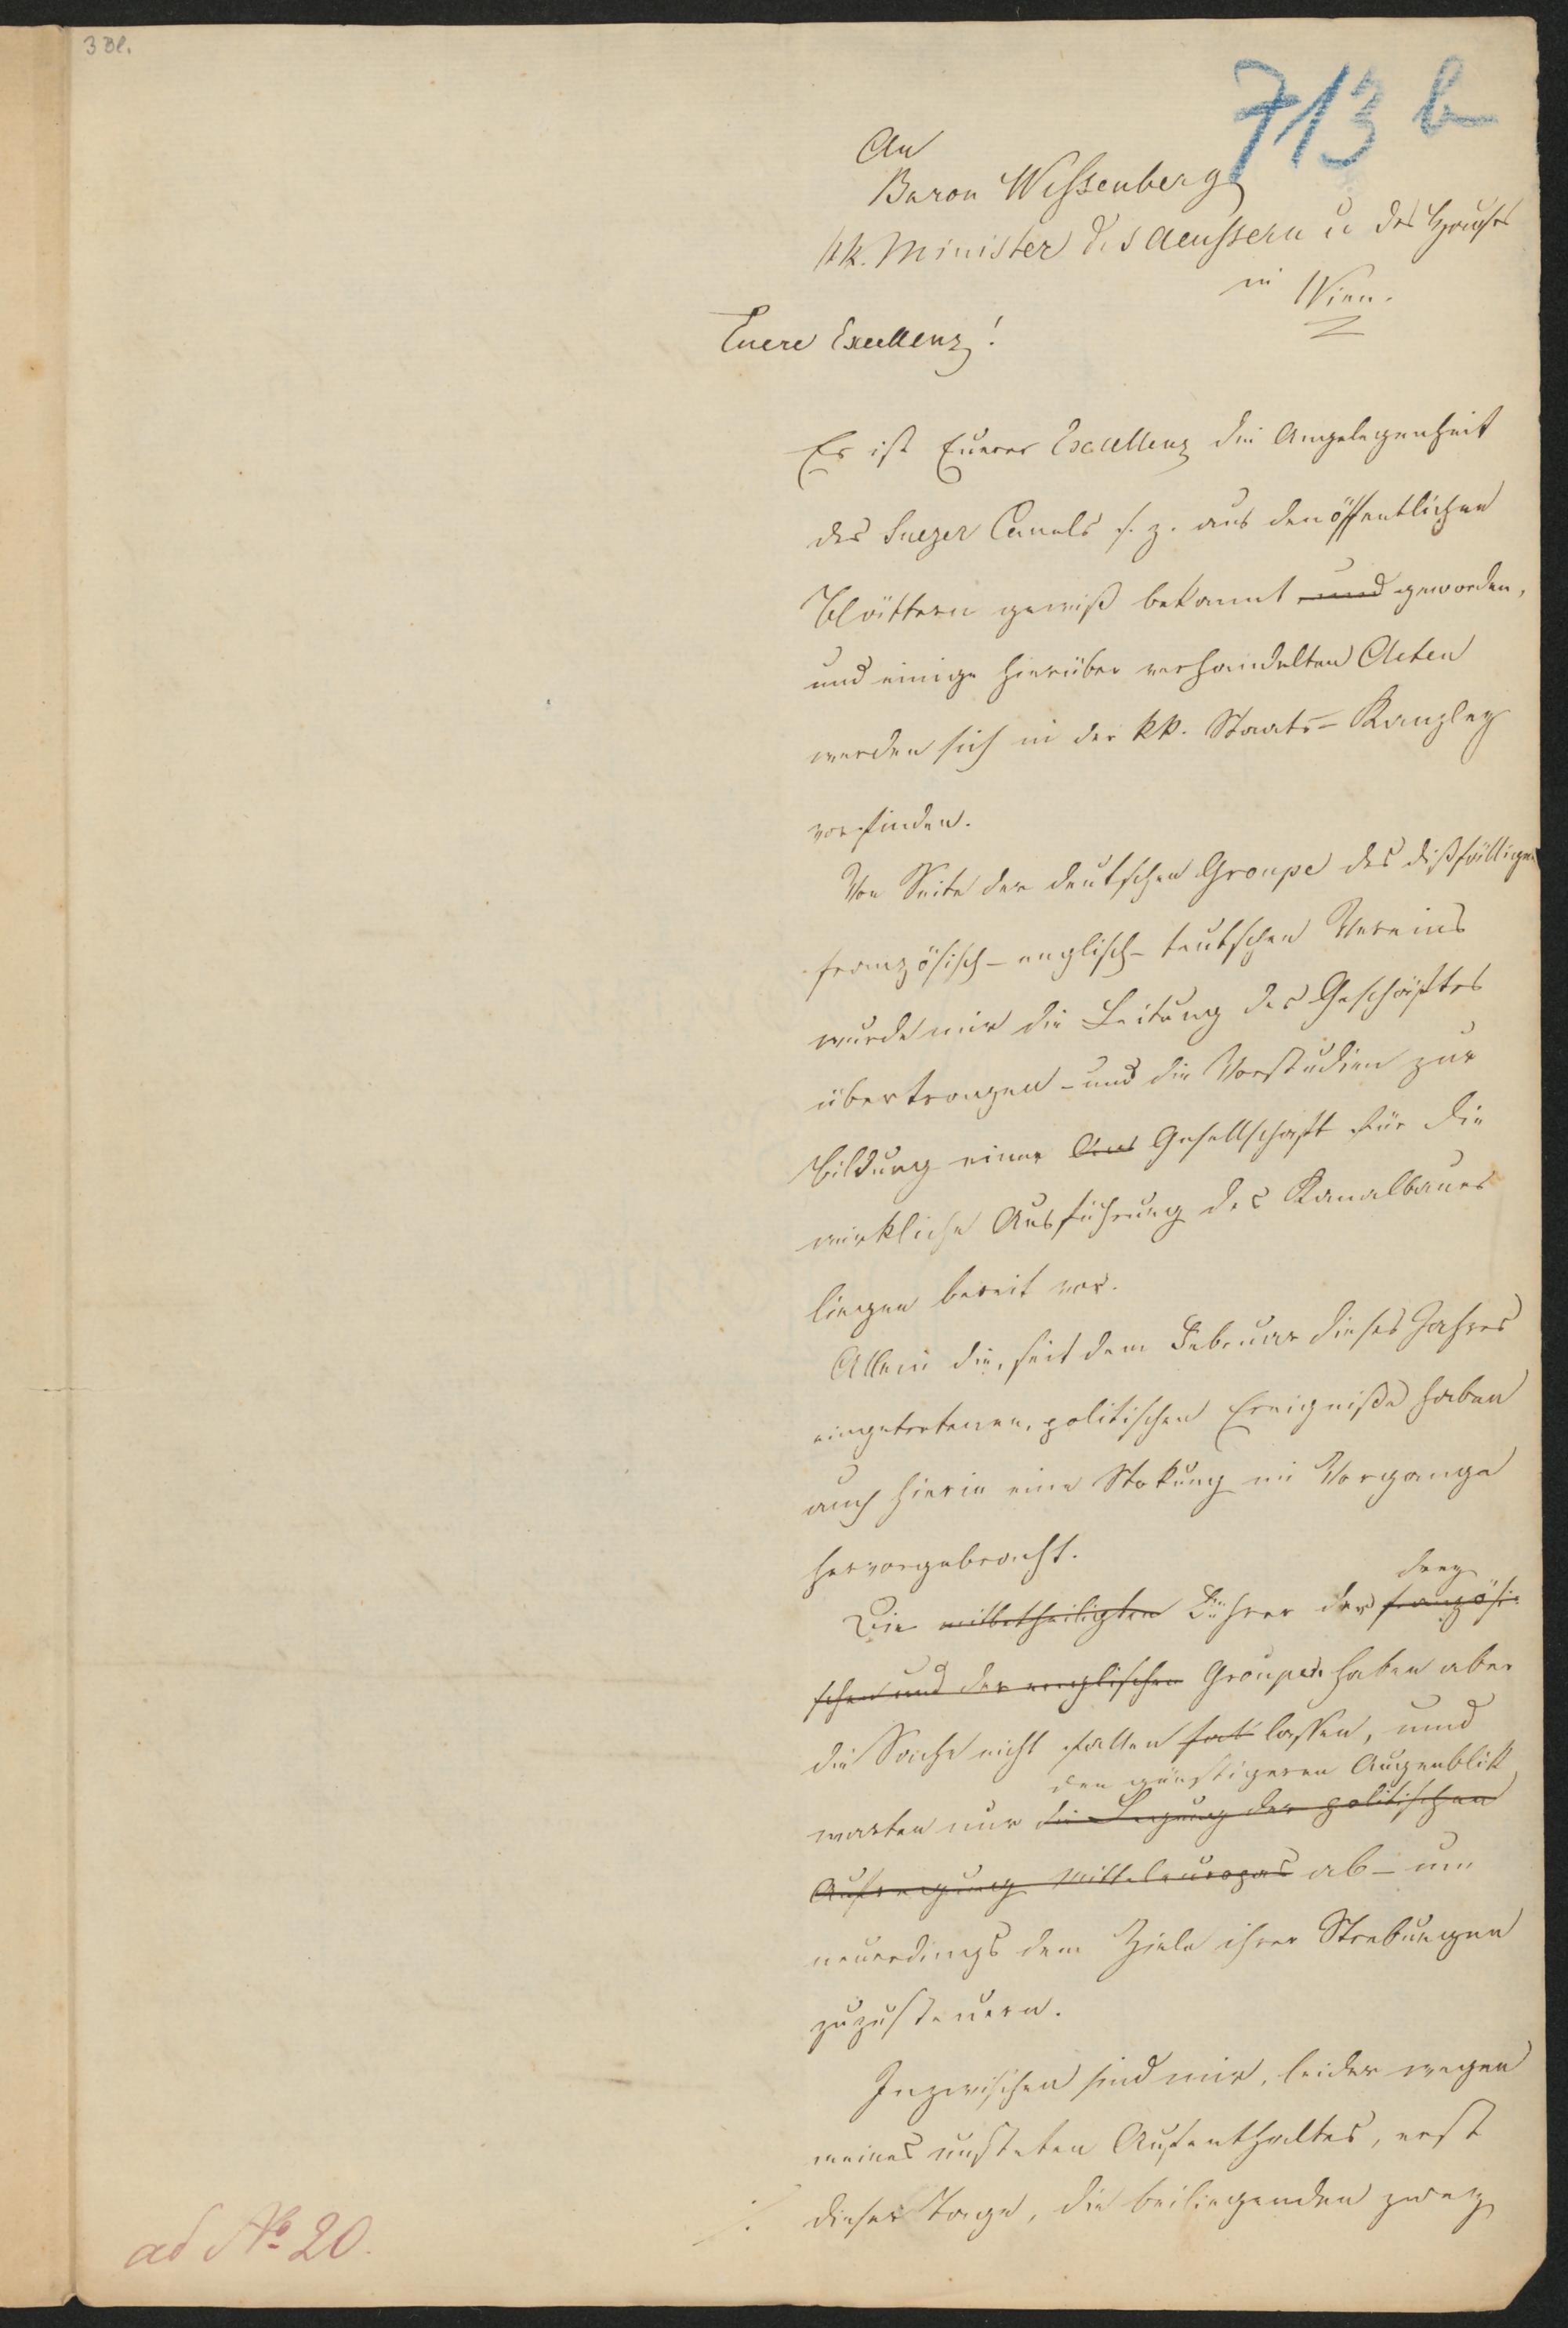 3 Bl.
713 b
An
Baron Wessenberg
kk. Minister des Aeussern u des Hauses
in Wien.
Euere Excellenz!
Es ist Euerer Excellenz die Angelegenheit
des Suezer Canals s. z. aus den öffentlichen
Blättern gewiß bekannt und geworden,
und einige hierüber verhandelten Acten
werden sich in der kk. Staats-Kanzley
vorfinden.
Von Seite der deutschen Groupe des dißfälligen
französisch-englisch-teutschen Vereins
wurde mir die Leitung des Geschäftes
übertragen - und die Vorstudien zur
Bildung einer Gesellschaft für die
wirkliche Ausführung des Kanalbaues
liegen bereit vor.
Allein die, seit dem Februar dieses Jahres
eingetretenen, politischen Ereigniße haben
auch hierin eine Stokung im Vorgange
hervorgebracht.
drey
Die mitbetheiligten Führer der französi-
schen und der englischen Groupen haben aber
die Sache nicht fallen hat lassen, und
den günstigeren Augenblik
warten nur die Legung der politischen
Aufregung Mitteleuropas ab - um
neuerdings dem Ziele ihrer Strebungen
zuzusteuern.
Inzwischen sind mir, leider wegen
meines unsteten Aufenthaltes, erst
dieser Tage, die beiliegenden zwey
./.
ad No 20.